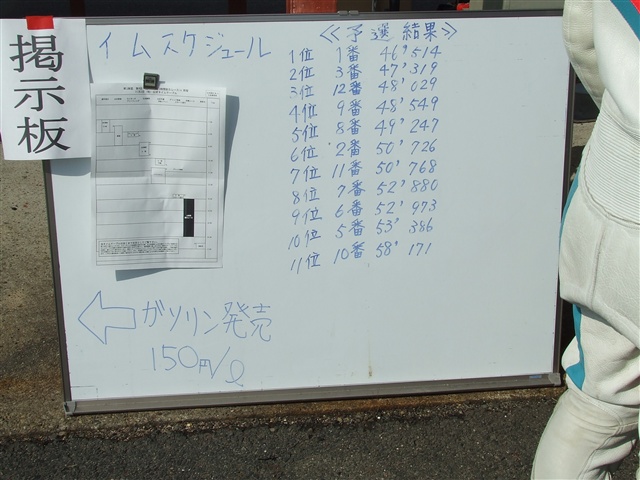 掲示板
イムスケジュール
≪予選結果≫
1位 1番 46'514
2位 3番 47'319
3位 12番 48'029
4位 9番 48'549
5位 8番 49'247
6位 2番 50'726
7位 11番 50'768
8位 7番 52'880
9位 6番 52'973
10位 5番 53'386
11位 10番 58'171
ガソリン発売
150円/ℓ